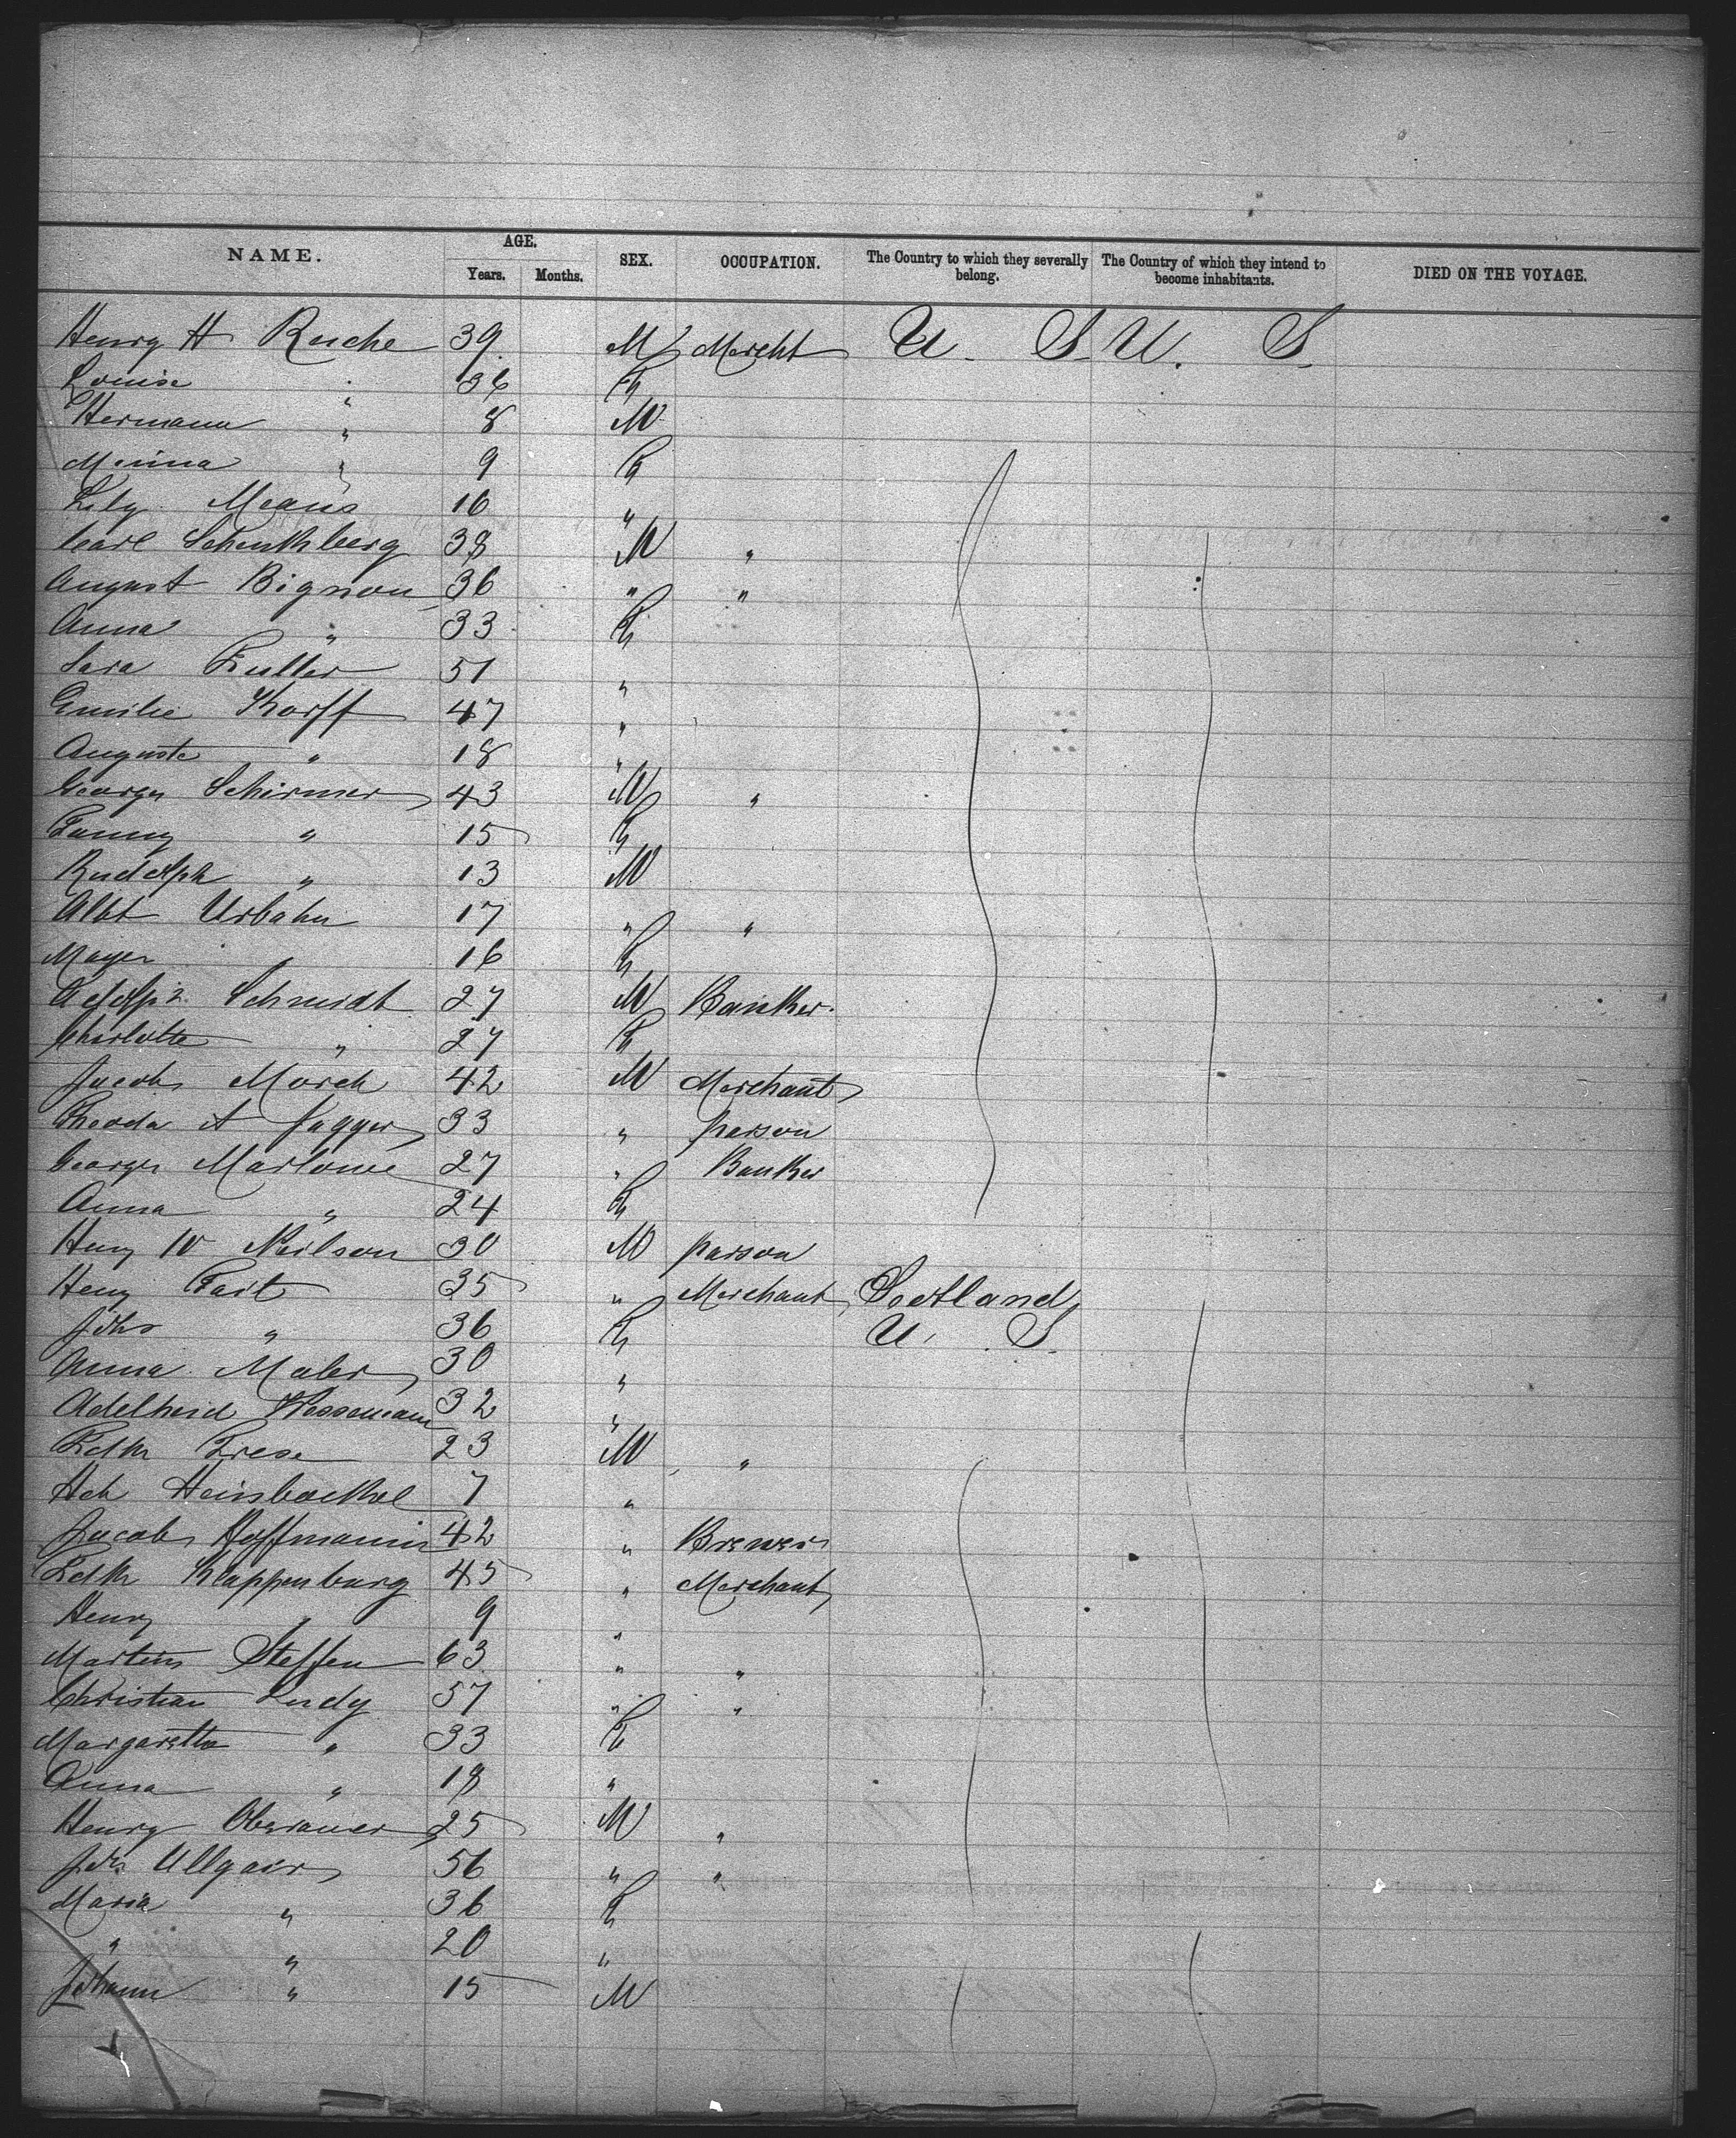 NAME. AGE. SEX. OCCUPATION. The Country to which they severally belong. The Country of which they intend to become inhabitants. DIED ON THE VOYAGE.
Years. Months.
Henry H Reiche 39 M Mercht U. S. U. S.
Louise " 36 F
Hermann " 8 M
Minna " 9 F
Lily Means 16 "
Carl Schenkberg 38 M "
August Bignon 36 " "
Anna " 33 F
Sara 51 "
Emilie Korff 47 "
Auguste " 18 "
George Schirmer 43 M "
Fanny " 15 F
Rudolph " 13 M
Albt Urbahn 17 " "
Mayer 16 F
Adolph Schmidt 27 M Banker
Charlotte " 27 F
Jacob March 42 M Merchant
Theoda A Jagger 33 " parson
George Marlowe 27 " Banker
Anna " 24 F
Henry W Neilson 30 M parson
Henry Tait 35 " Merchant Scotland
" 36 F U. S.
Anna 30 "
Adelheid Wessemann 32 "
Fdk Frese 23 M "
Hch Heinsbockel 7 "
Jacob Hoffmann 42 " Brewer
Fdk Kappenburg 45 " Merchant
Henry 9 "
Martin Steffen 63 " "
Christian Lindy 57 " "
Margaretta " 33 F
Anna " 18 "
Henry Oberauer 25 M "
Joh Ullgair 56 " "
Maria " 36 F
" " 20 "
Johann " 15 M